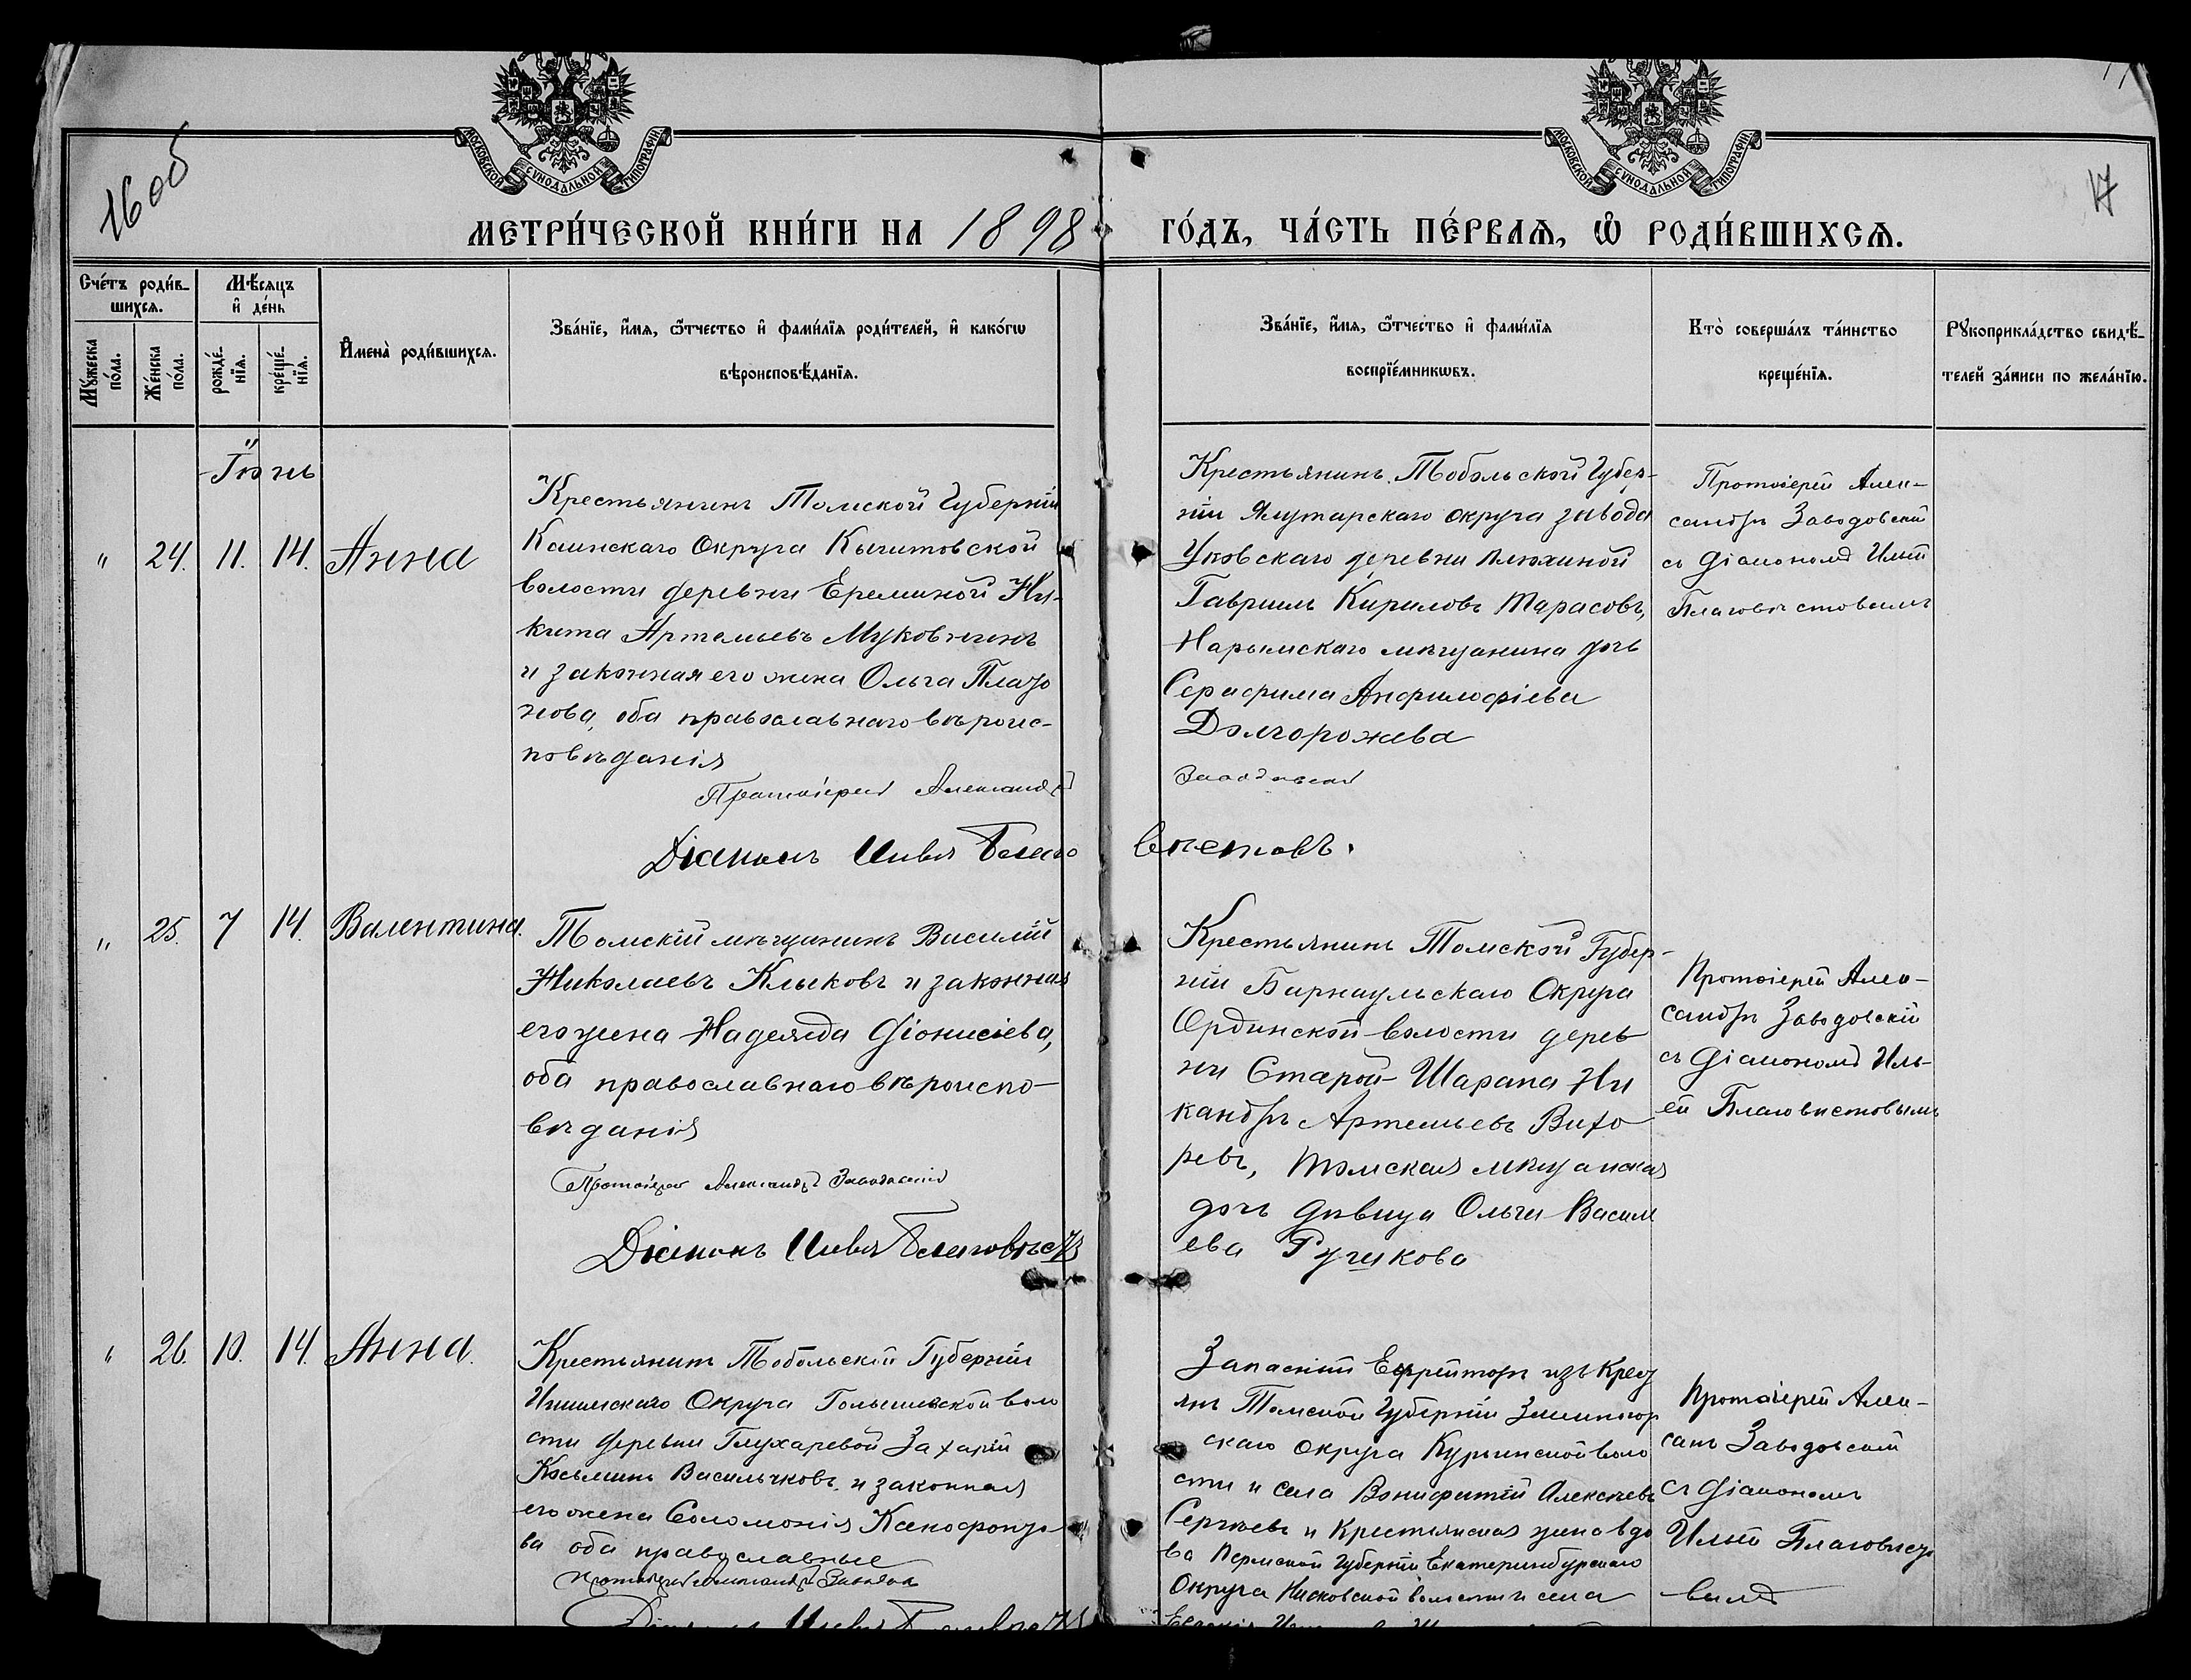 МОСКОВСКОЙ СѴНОДАЛЬНОЙ ТИПОГРАФІИ
МОСКОВСКОЙ СѴНОДАЛЬНОЙ ТИПОГРАФІИ
16 об
17
МЕТРИ́ЧЕСКОЙ КНИ́ГИ НА 1898 ГО́ДЪ, ЧА́СТЬ ПЕ́РВАѦ, Ѡ҆ РОДИ́ВШИХСѦ.
Сче́тъ роди́в-
шихсѧ.
Мꙋ́жеска
по́ла.
Же́нска
по́ла.
Мѣ́сѧцъ
и҆ де́нь
рожде́-
нїѧ.
креще́-
нїѧ.
И҆мена̀ роди́вшихсѧ.
Зва́нїе, и҆́мѧ, ѻ҆́тчество и҆ фами́лїѧ роди́телей, и҆ како́гѡ
вѣроисповѣ́данїѧ.
Зва́нїе, и҆́мѧ, ѻ҆́тчество и҆ фами́лїѧ
воспрїе́мникѡвъ.
Кто̀ соверша́лъ та́инство
креще́нїѧ.
Рꙋкоприкла́дство свидѣ́-
телей за́писи по жела́нїю.
Іюнь
" 24. 11. 14. Анна
Крестьянинъ Томской Губерніи
Каинскаго Округа Кыштовской
волости деревни Ереминой Ни-
кита Артемьевъ Муковнинъ
и законная его жена Ольга Плато
нова, оба православнаго вѣроис-
повѣданія
Протоіерей Александръ
Заводовскій
Діаконъ Илья Благо
вѣстовъ.
Крестьянинъ Тобольской Губер-
ніи Ялуторскаго округа завода
Уковскаго деревни Плюхиной
Гавриилъ Кириловъ Тарасовъ,
Нарымскаго мѣщанина дочь
Серафима Анфилофіева
Долгорожева
Протоіерей Алек-
сандръ Заводовскій
съ Діакономъ Ильей
Благовѣстовымъ
" 25. 7 14. Валентина.
Томскій мѣщанинъ Василій
Николаевъ Клыковъ и законная
его жена Надежда Діонисіева,
оба православнаго вѣроиспо-
вѣданія
Протоіерей Александръ Заводовскій
Діаконъ Илья Благовѣстовъ
Крестьянинъ Томской Губер-
ніи Барнаульскаго Округа
Ординской волости дерев
ни Старой-Шарапа Ни
кандръ Артемьевъ Вихо
ревъ, Томская мѣщанская
дочь дѣвица Ольга Василь
ева Ручкова
Протоіерей Алек-
сандръ Заводовскій
съ Діакономъ Иль-
ей Благовѣстовымъ
" 26. 10. 14. Анна.
Крестьянинъ Тобольской Губерніи
Ишимскаго Округа Голышевской воло
сти деревни Глухаревой Захарій
Косьминъ Васильчковъ и законная
его жена Соломонія Ксенофонто
ва оба православные
Протоіерей Александръ Заводовскій
Діаконъ Илья Благовѣстовъ
Запасный Ефрейторъ изъ Крест
янъ Томской Губерніи Змѣиногор
скаго округа Курьинской воло
сти и села Вонифатій Алексѣевъ
Сергѣевъ и Крестьянская жена вдо
ва Пермской Губерніи Екатеринбургскаго
Округа волости и села
Протоіерей Алек-
санъ Заводовскій
съ Діакономъ
Ильей Благовѣсто
вымъ